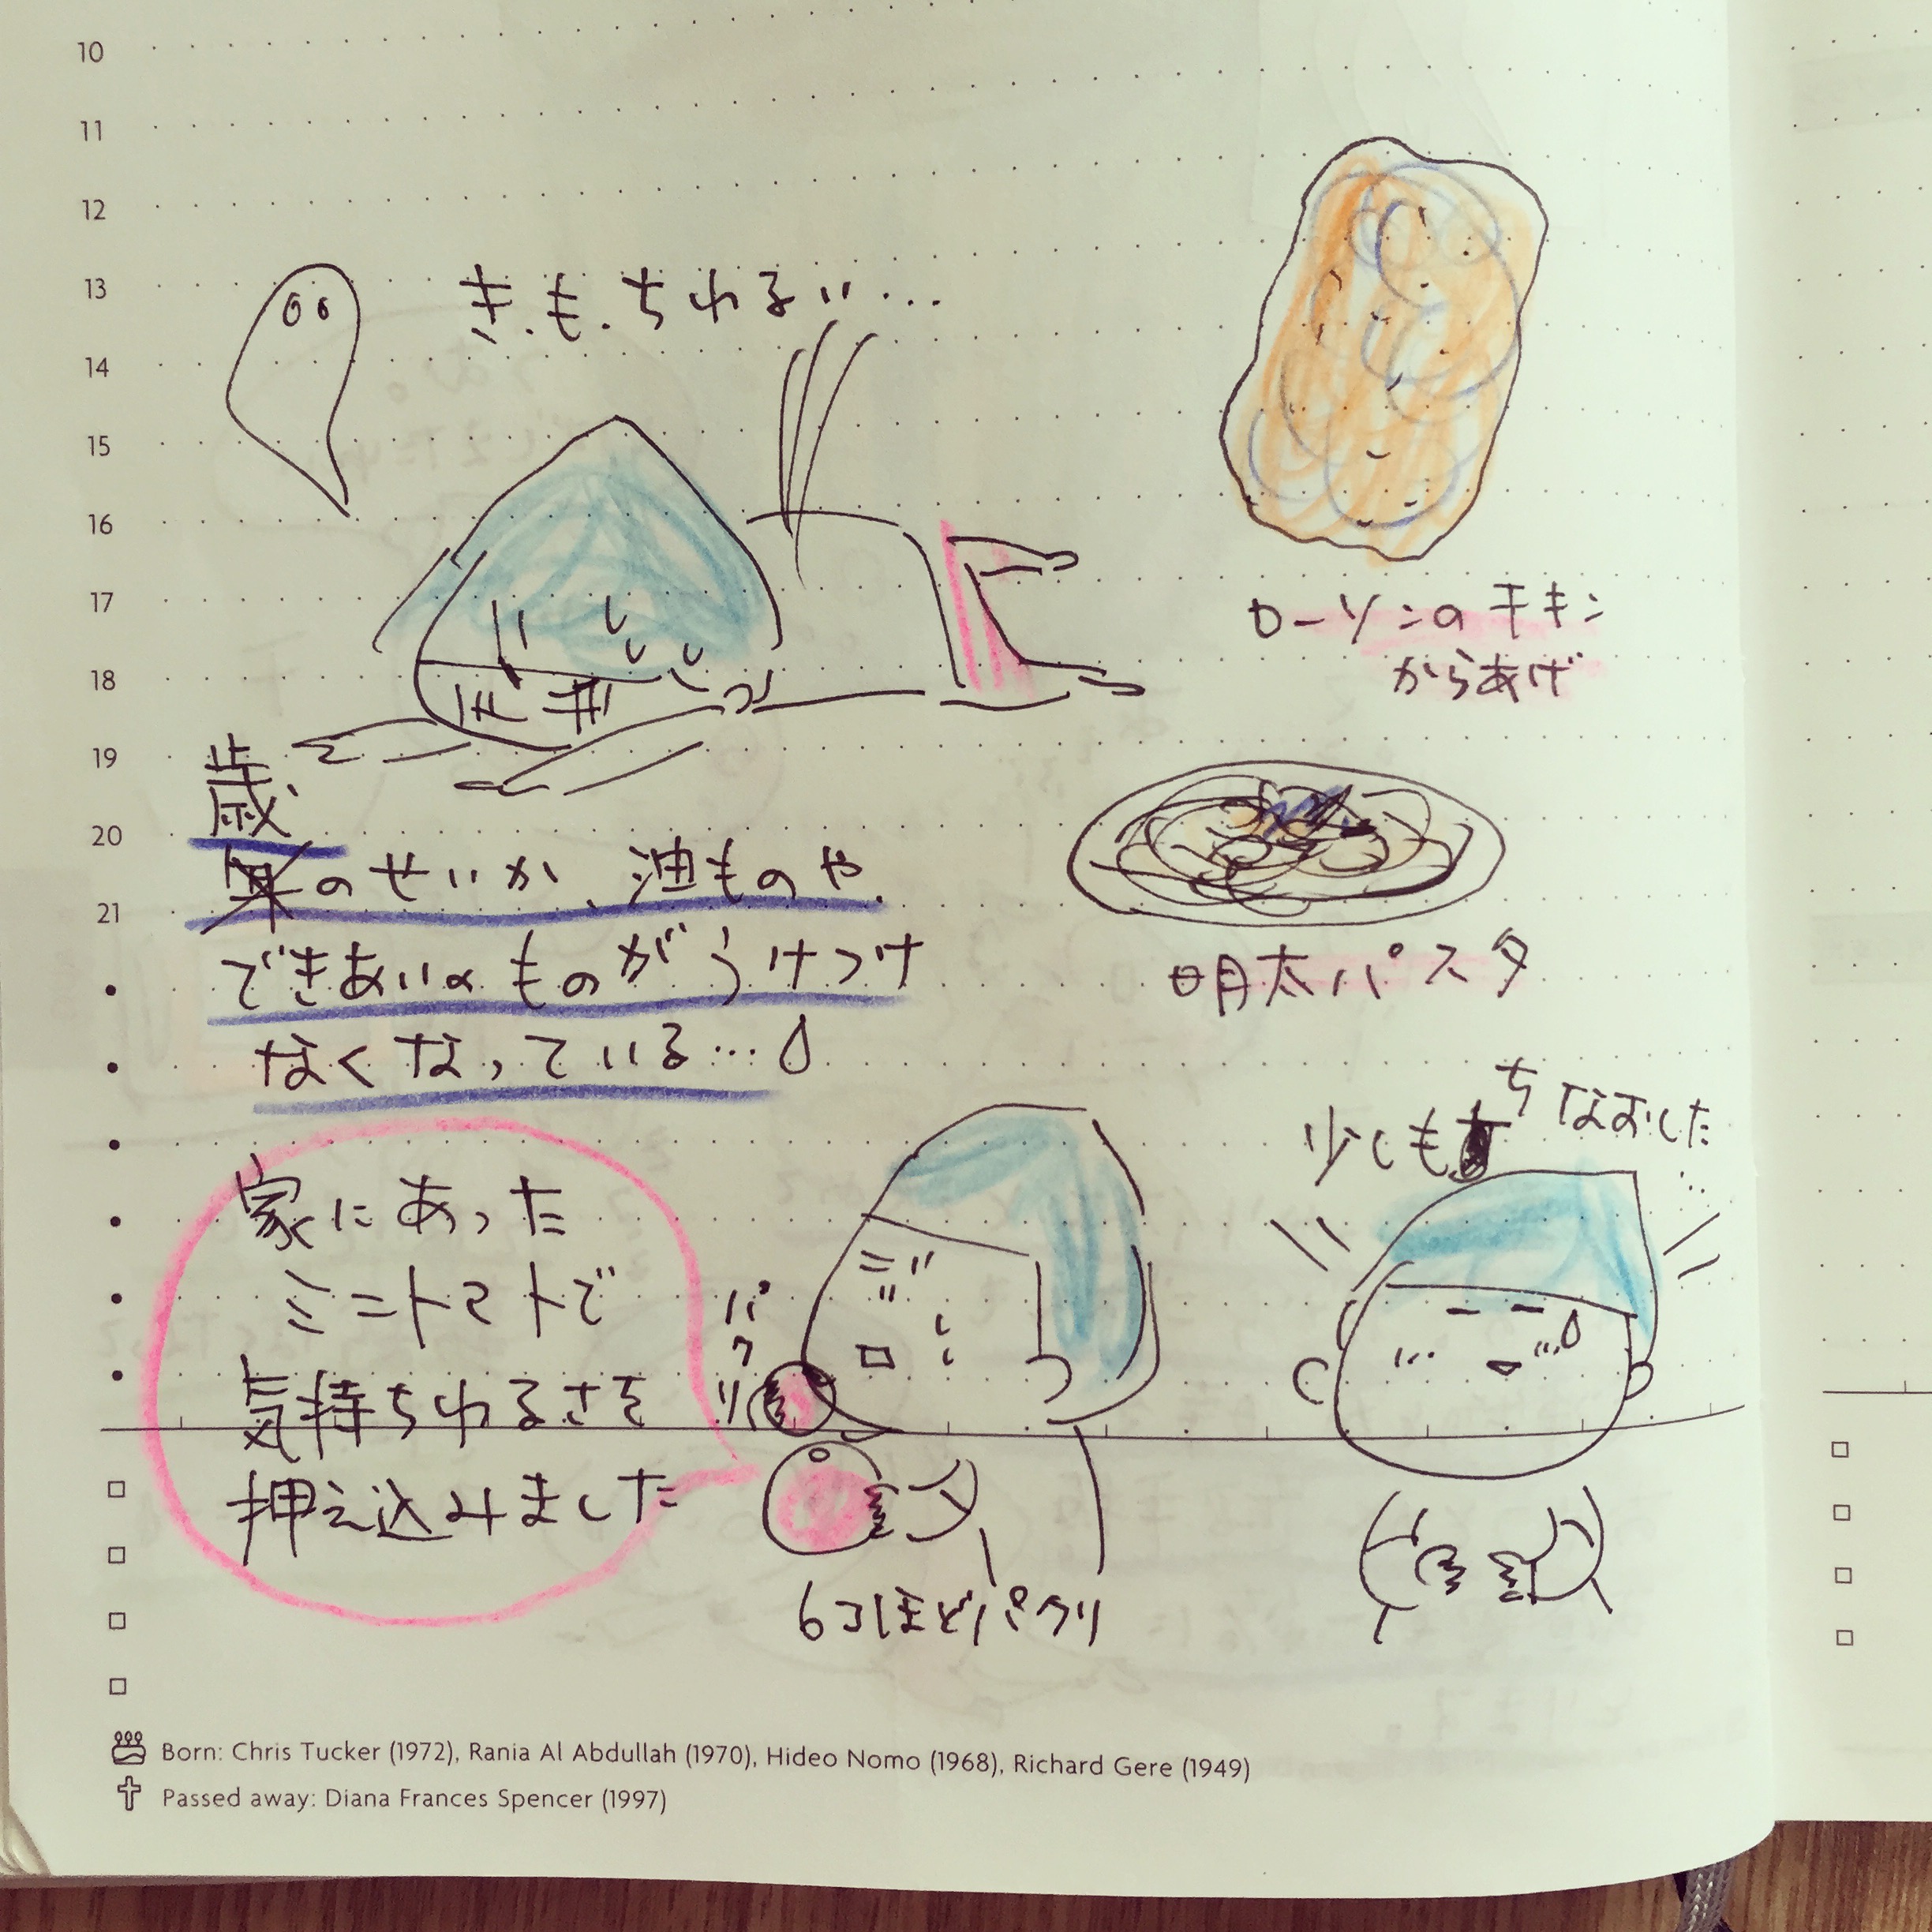 10
11
12
13
14
15
16
17
18
19
20
21
き.も.ちわるい…
ローソンのチキン
からあげ
歳
のせいか、油ものや
できあいのものがうけつけ
なくなっている…
明太パスタ
少しもちなおした…
家にあった
ミニトマトで
気持ちわるさを
押え込みました
パクリ
6コほどパクリ
Born: Chris Tucker (1972), Rania Al Abdullah (1970), Hideo Nomo (1968), Richard Gere (1949)
Passed away: Diana Frances Spencer (1997)